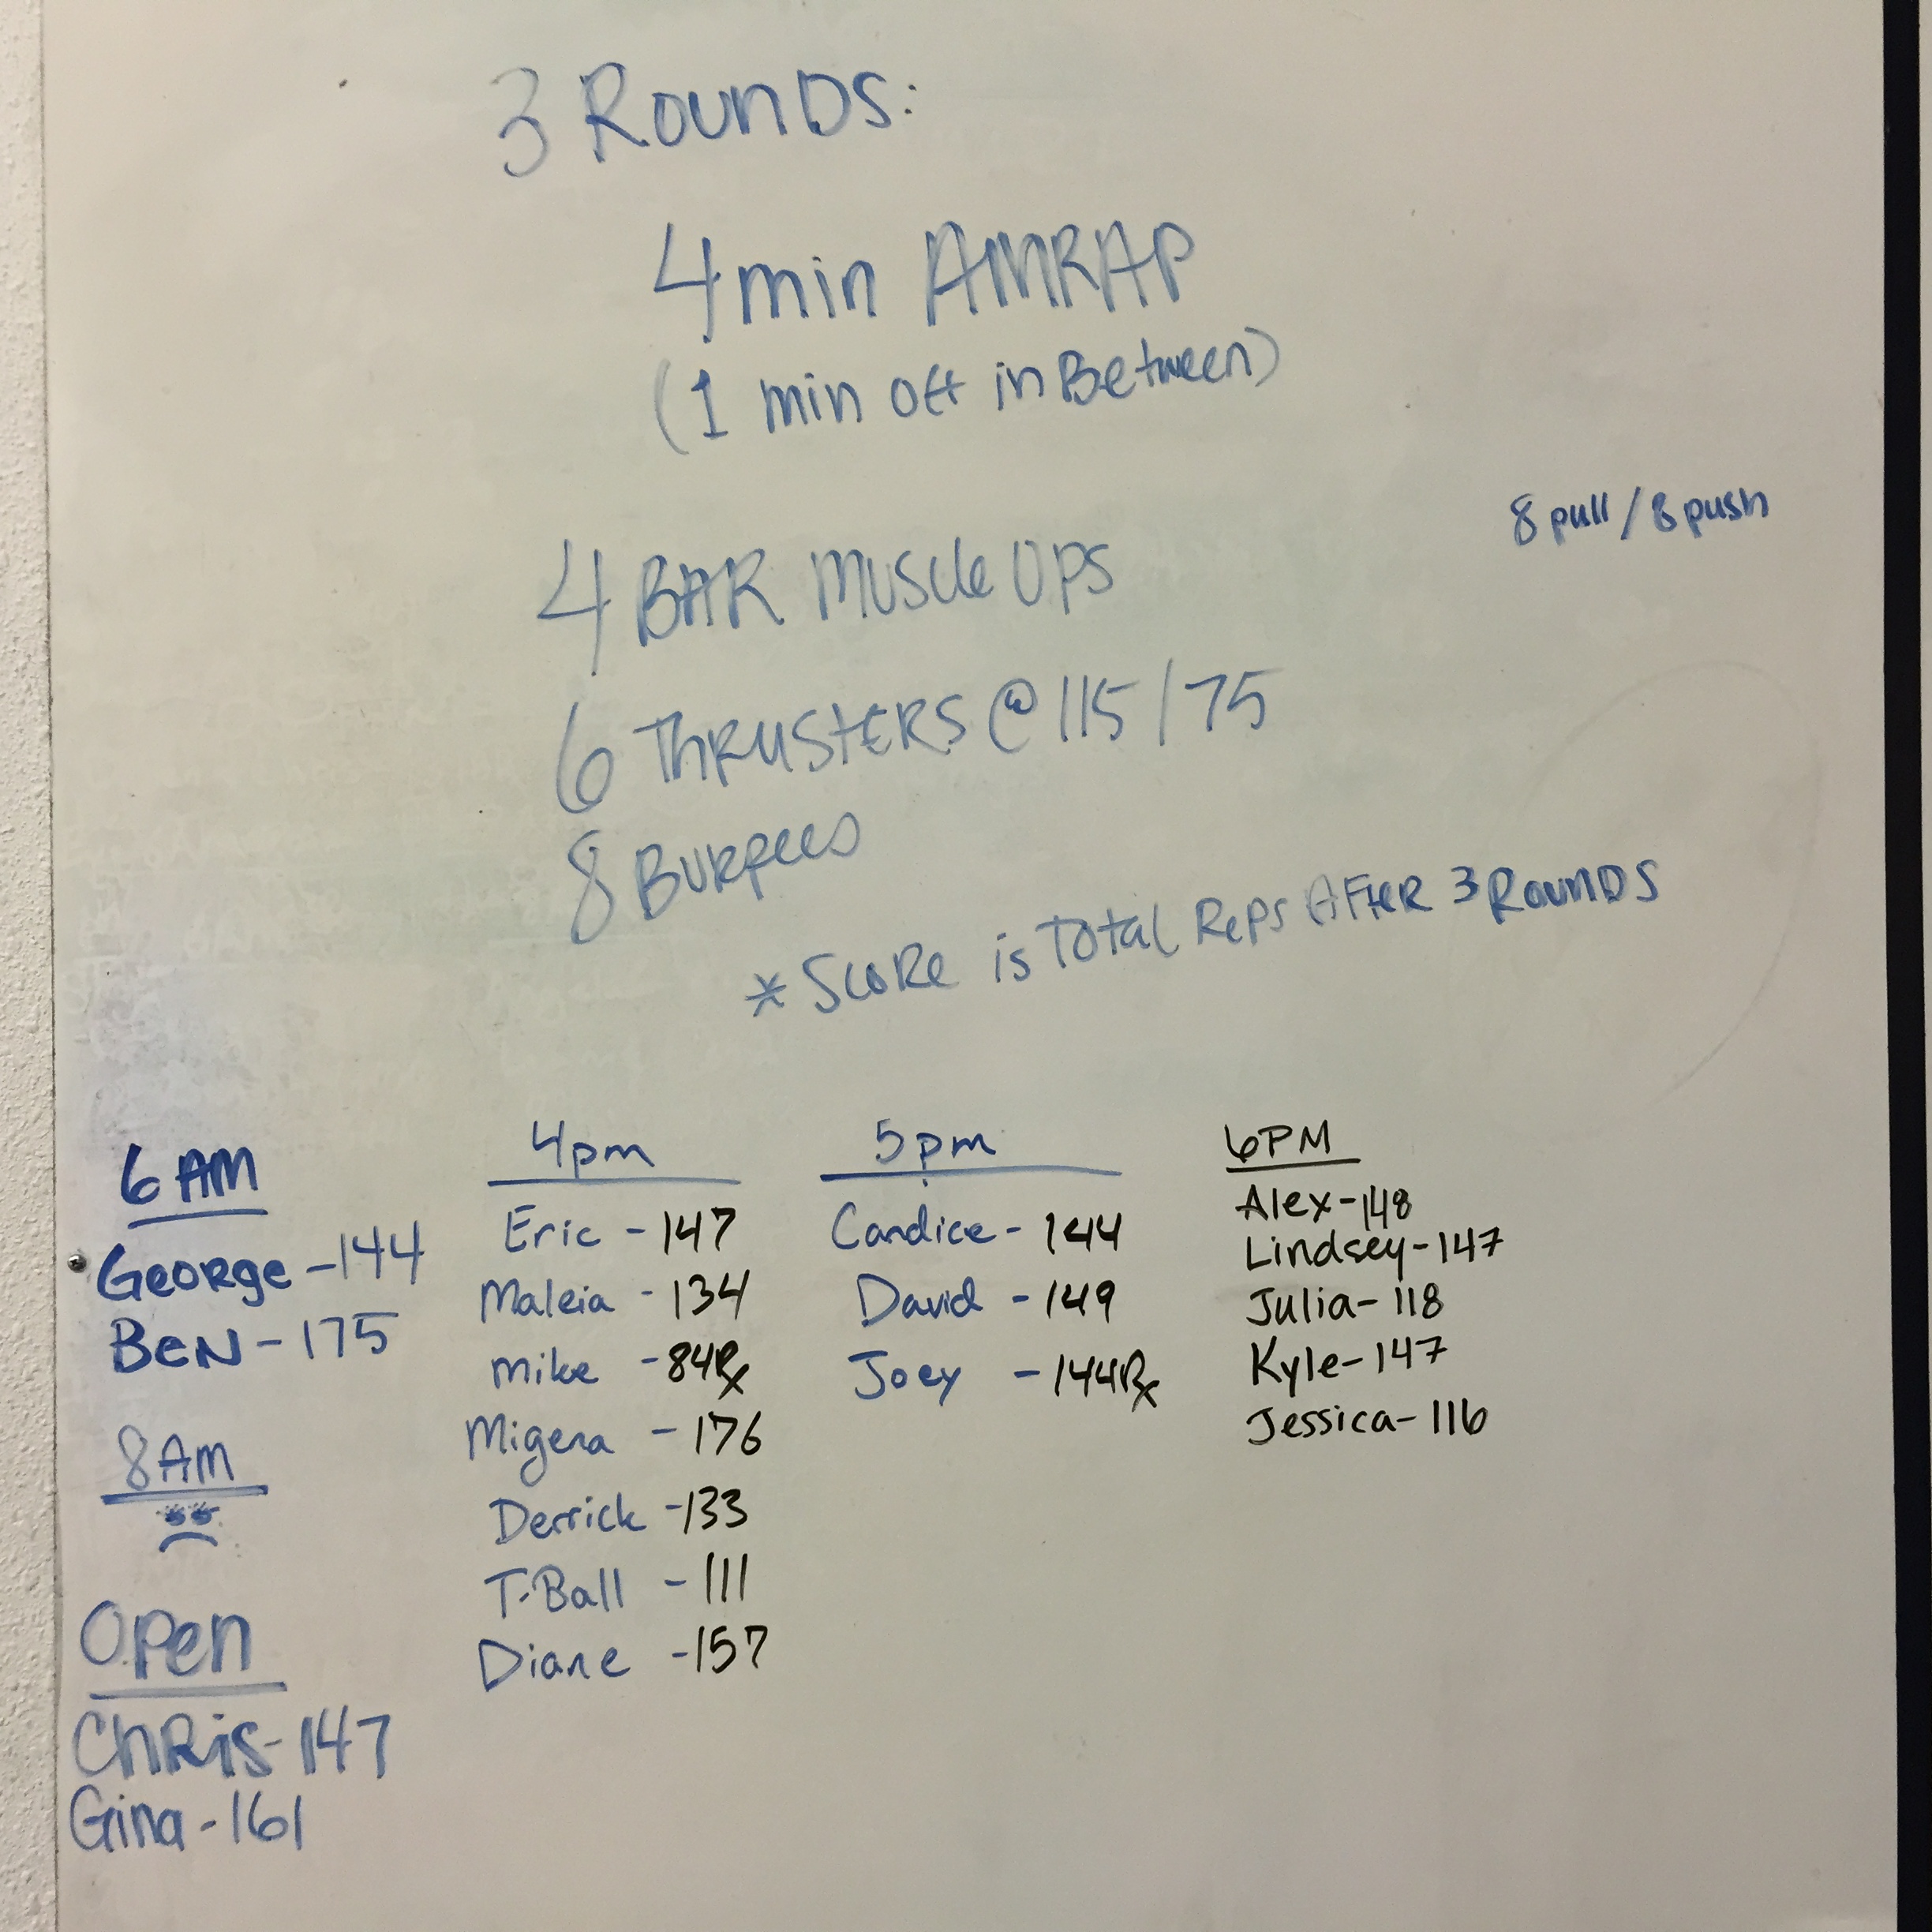 3 Rounds:
4 min AMRAP
(1 min off in Between)
8 pull / 8 push
4 BAR Muscle Ups
6 Thrusters @ 115/75
8 Burpees
* Score is Total Reps After 3 Rounds
6 AM
George - 144
Ben - 175
8 Am
Open
Chris - 147
Gina - 161
4pm
Eric - 147
Maleia - 134
Mike - 84Rx
Migena - 176
Derrick - 133
T-Ball - 111
Diane - 157
5pm
Candice - 144
David - 149
Joey - 144Rx
6PM
Alex - 148
Lindsey - 147
Julia - 118
Kyle - 147
Jessica - 116